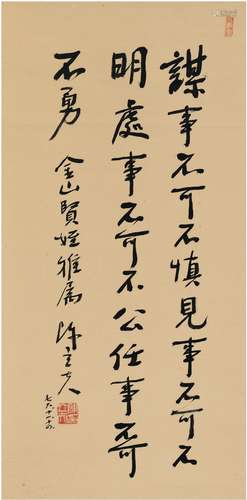 謀事不可不慎見事不可不
明處事不可不公任事不可
不勇
金山賢姪雅屬 陳立夫